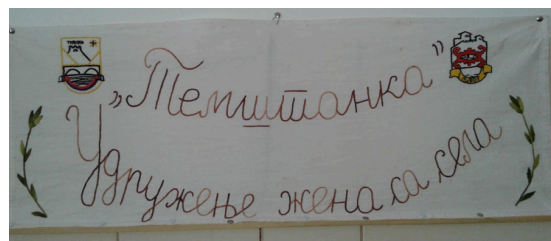 „Темштанка”
Удружење жена са села